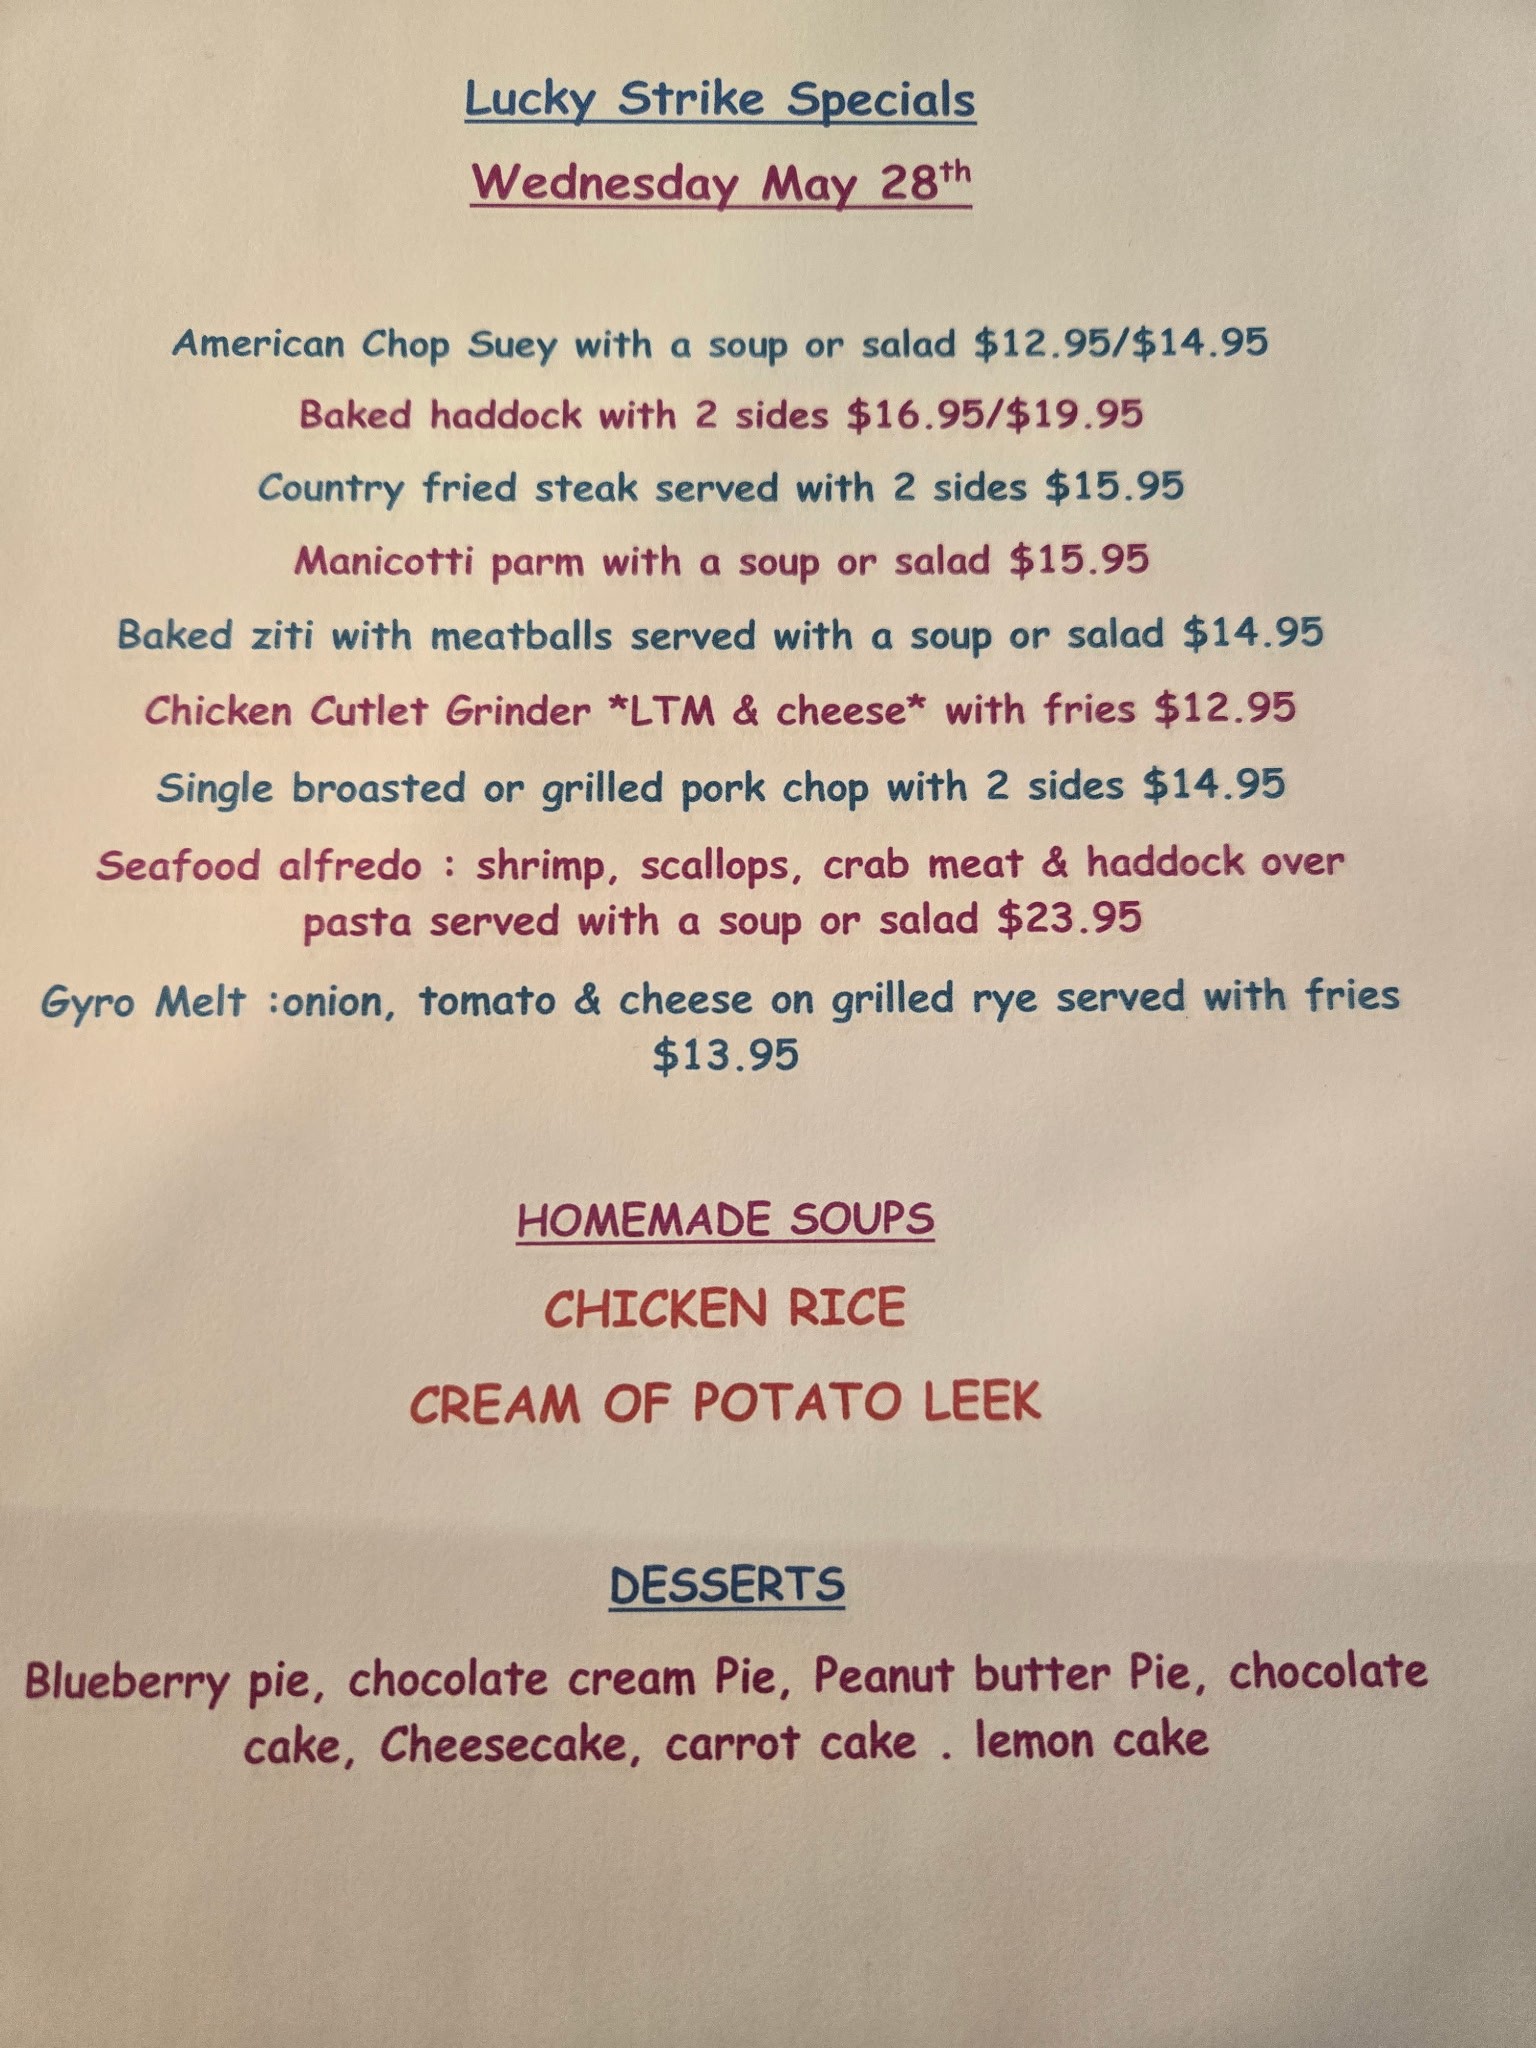 Lucky Strike Specials
Wednesday May 28th
American Chop Suey with a soup or salad $12.95/$14.95
Baked haddock with 2 sides $16.95/$19.95
Country fried steak served with 2 sides $15.95
Manicotti parm with a soup or salad $15.95
Baked ziti with meatballs served with a soup or salad $14.95
Chicken Cutlet Grinder *LTM & cheese* with fries $12.95
Single broasted or grilled pork chop with 2 sides $14.95
Seafood alfredo : shrimp, scallops, crab meat & haddock over
pasta served with a soup or salad $23.95
Gyro Melt :onion, tomato & cheese on grilled rye served with fries
$13.95
HOMEMADE SOUPS
CHICKEN RICE
CREAM OF POTATO LEEK
DESSERTS
Blueberry pie, chocolate cream Pie, Peanut butter Pie, chocolate
cake, Cheesecake, carrot cake . lemon cake